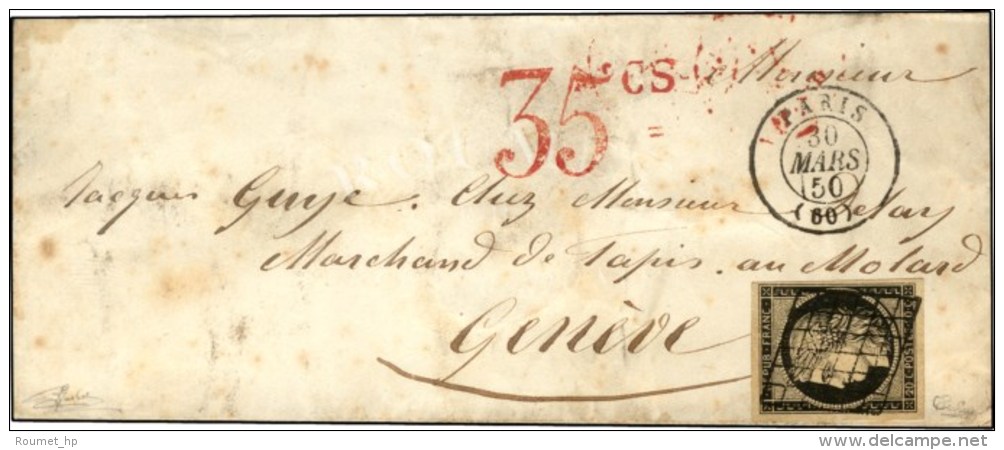 35 cs
à Monsieur
PARIS
30
MARS
50
(60)
Jacques Guye. Chez Monsieur
Marchand de Tapis. au Molard
Genève
REPUB FRANC
POSTE
Roumet_hp
delcampe.net